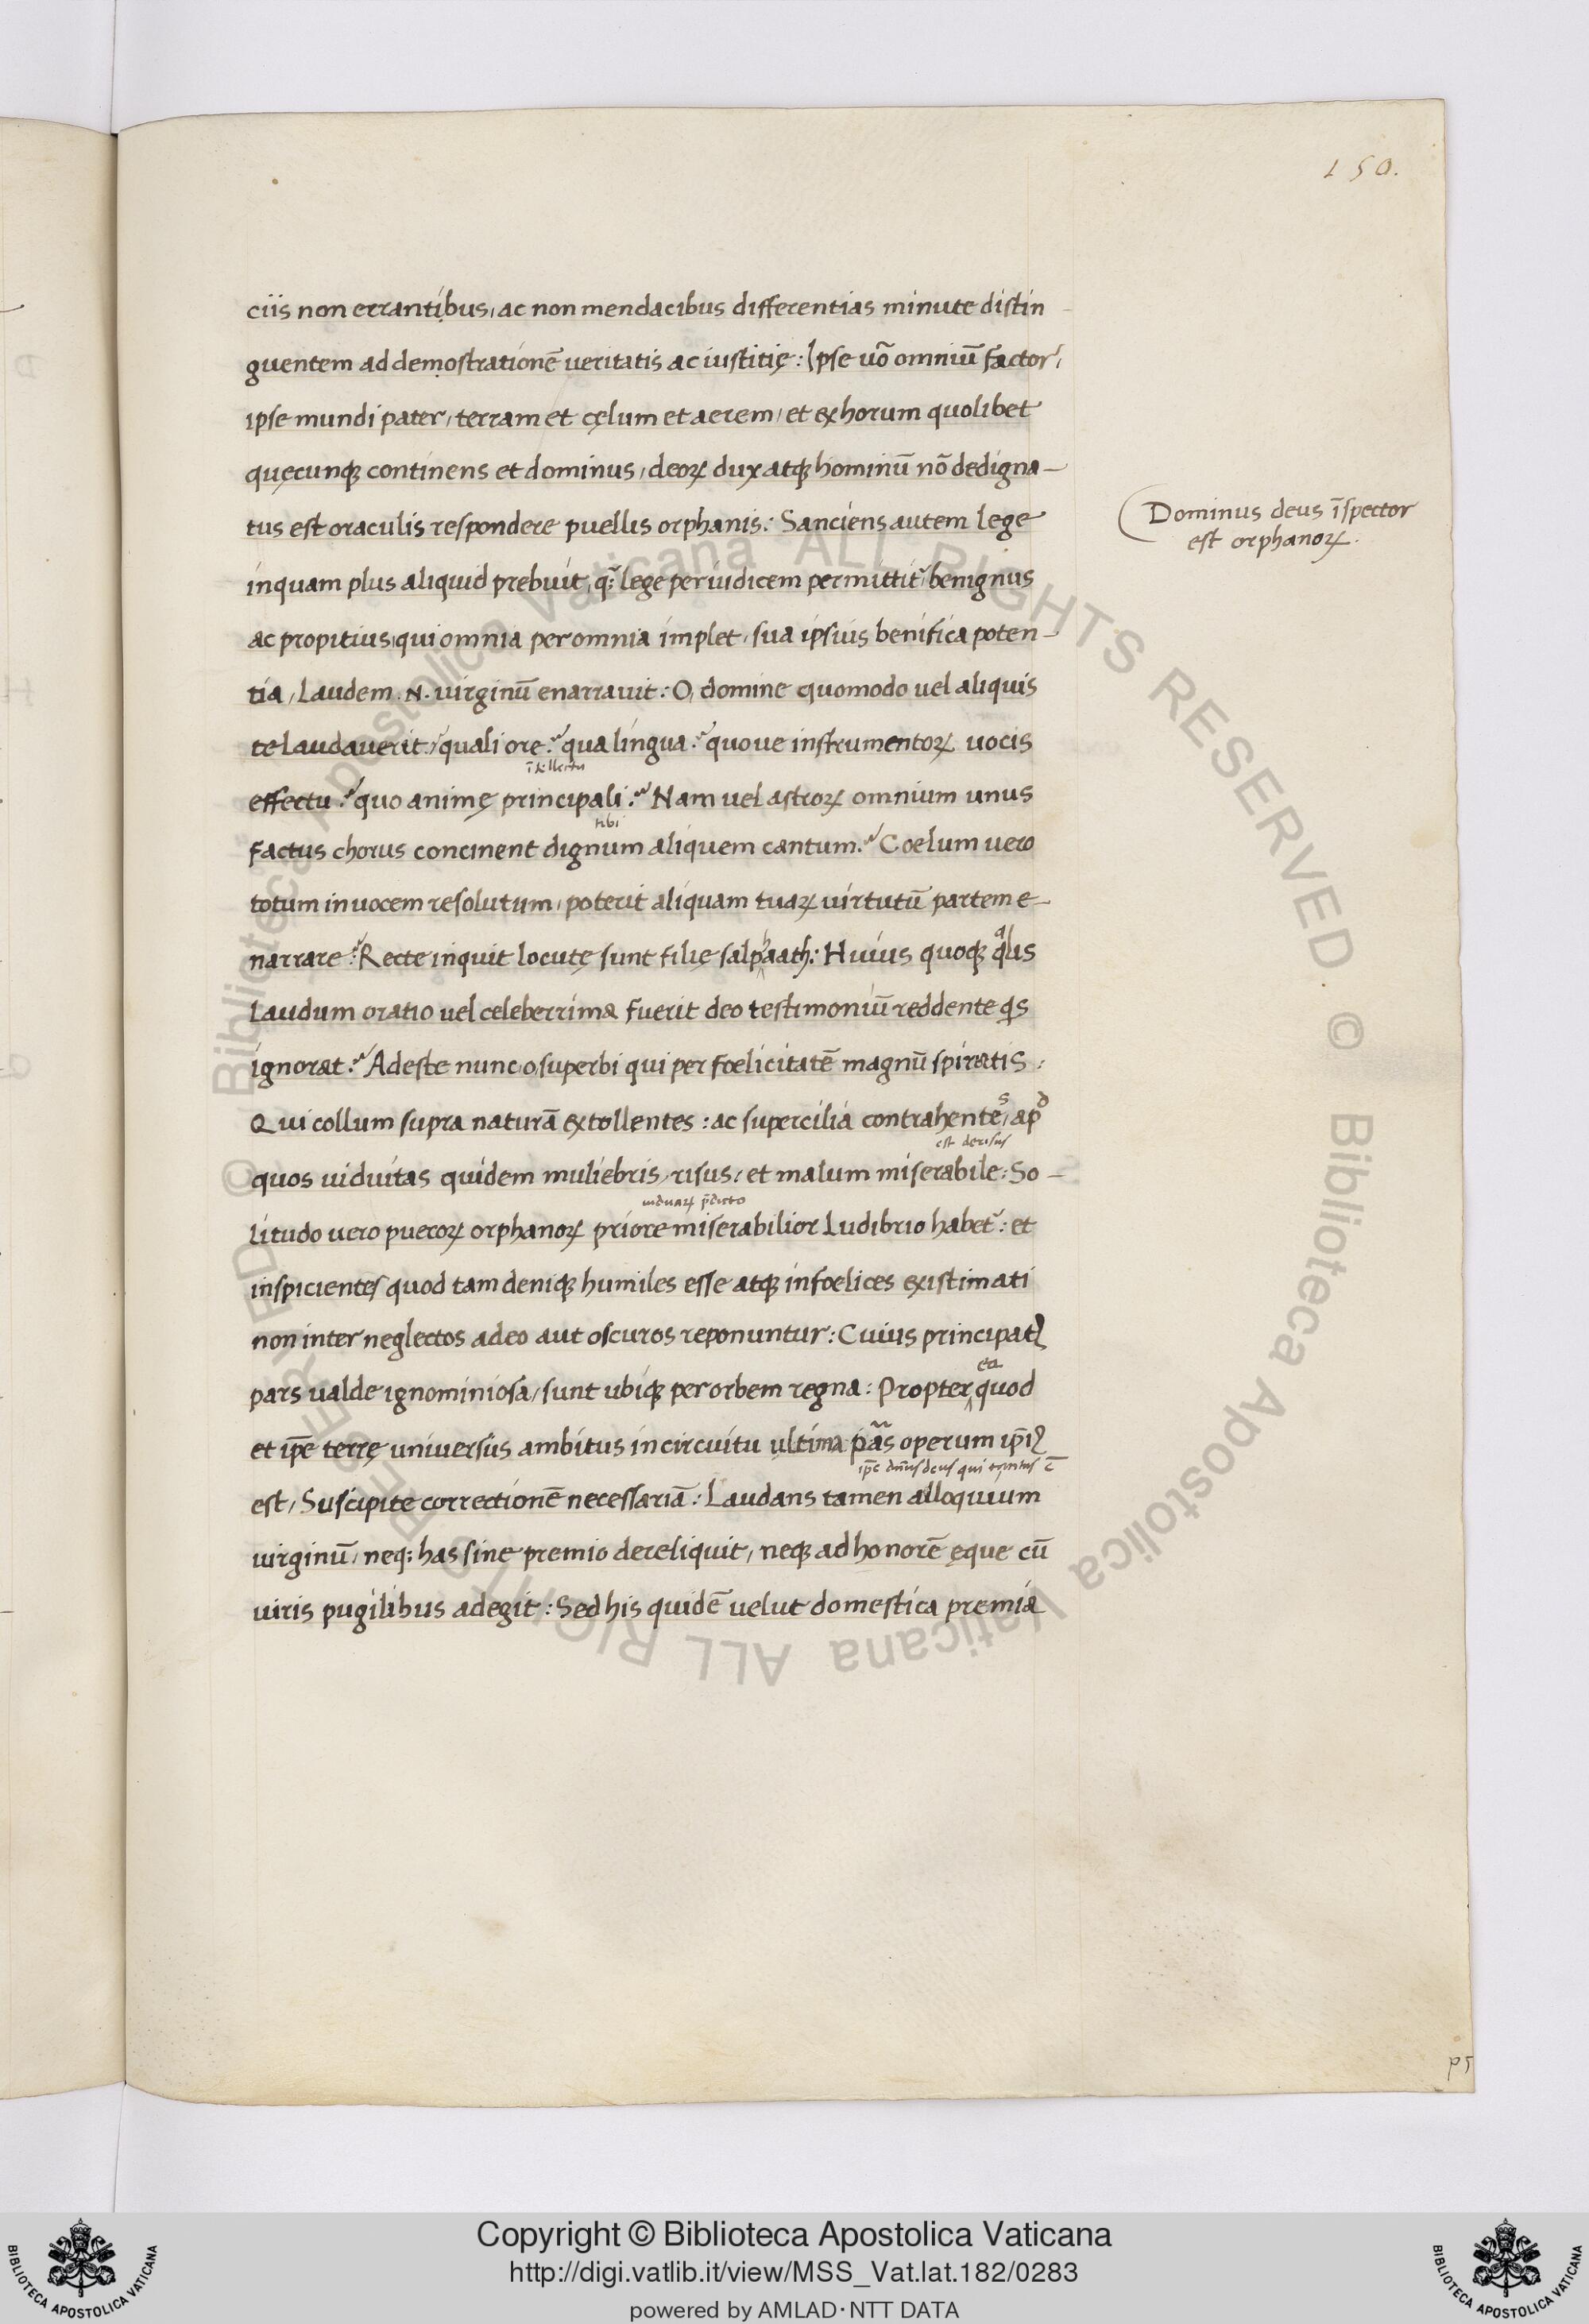 150.
ciis non errantibus, ac non mendacibus differentias minute distin-
guentem ad demostrationē veritatis ac iustitię: Ipse uō omniū factor,
ipse mundi pater, terram et cęlum et aerem, et ex horum quolibet
quęcunqꝫ continens et dominus, deoꝝ dux atqꝫ hominū nō dedigna-
tus est oraculis respondere puellis orphanis: Sanciens autem lege
Dominus deus īspector
est orphanoꝝ.
inquam plus aliquid prebuit, q; lege per iudicem permittit̃, benignus
ac propitius, qui omnia per omnia implet, sua ipsius benifica poten-
tia, Laudem .N. virginū enarravit: O, domine quomodo vel aliquis
te laudaverit? quali ore? qua lingua? quove instrumentoꝝ vocis
ītellectu
effectu? quo animę principali? Nam vel astroꝝ omnium unus
tibi
factus chorus concinent dignum aliquem cantum? Coelum vero
totum in vocem resolutum, poterit aliquam tuaꝝ virtutū partem e-
narrare? Recte inquit locutę sunt filię salphaath: Huius quoqꝫ qalis
Laudum oratio vel celeberrima fuerit deo testimoniū reddente qis
ignorat? Adeste nunc, o, superbi qui per foelicitatē magnū spiratis:
Qui collum supra naturā extollentes: ac supercilia contrahentes, apd
est derisus
quos viduitas quidem muliebris, risus, et malum miserabile: So-
viduaꝝ p̄dicto
litudo vero pueroꝝ orphanoꝝ priore miserabilior ludibrio habet̃: et
inspicientes quod tam deniqꝫ humiles esse atqꝫ infoelices existimati
non inter neglectos adeo aut oscuros reponuntur: Cuius principatꝰ
ea
pars valde ignominiosa, sunt ubiqꝫ per orbem regna: Propter quod
et ip̄e terrę universus ambitus in circuitu ultima pãs operum ip̄iꝰ
ip̄e dn̄us deus qui
est, Suscipite correctionē necessariā: Laudans tamen alloquium
virginū, neq; has sine premio dereliquit, neqꝫ ad honorē ęque cū
viris pugilibus adegit: Sed his quidē velut domestica premia
P5
© Biblioteca Apostolica Vaticana ALL RIGHTS RESERVED © Biblioteca Apostolica Vaticana ALL RIGHTS RESERVED
BIBLIOTECA APOSTOLICA VATICANA
Copyright © Biblioteca Apostolica Vaticana
http://digi.vatlib.it/view/MSS_Vat.lat.182/0283
powered by AMLAD·NTT DATA
BIBLIOTECA APOSTOLICA VATICANA